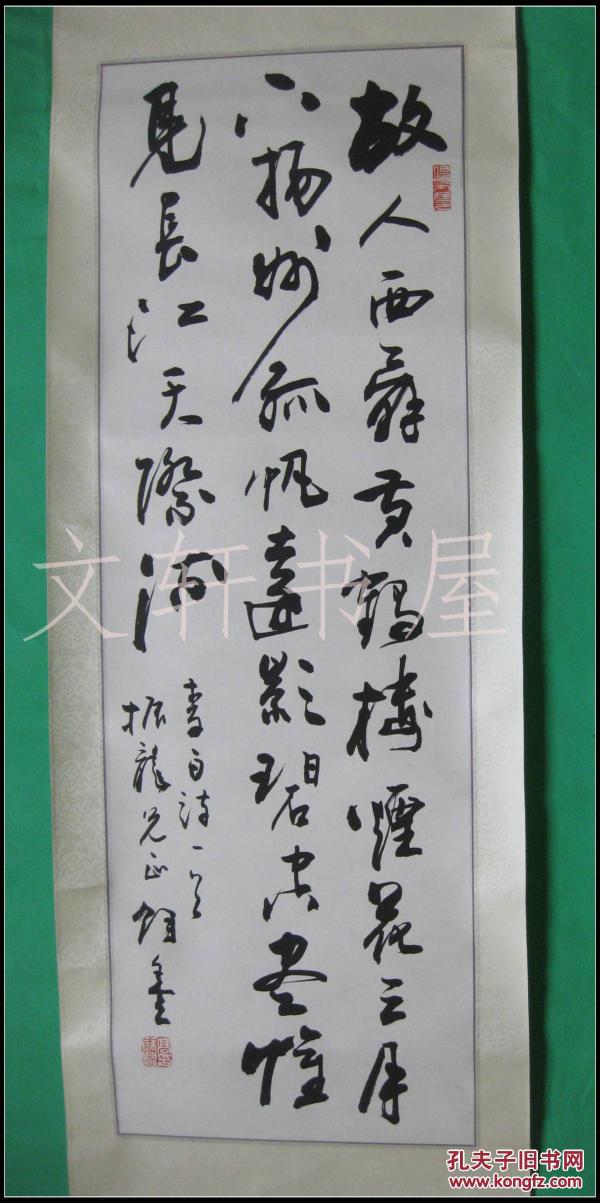 故人西辞黄鹤楼煙花三月
下扬州孤帆遠影碧空尽惟
見長江天際流
李白詩一首
振龍兄正
文轩书屋
孔夫子旧书网
www.kongfz.com